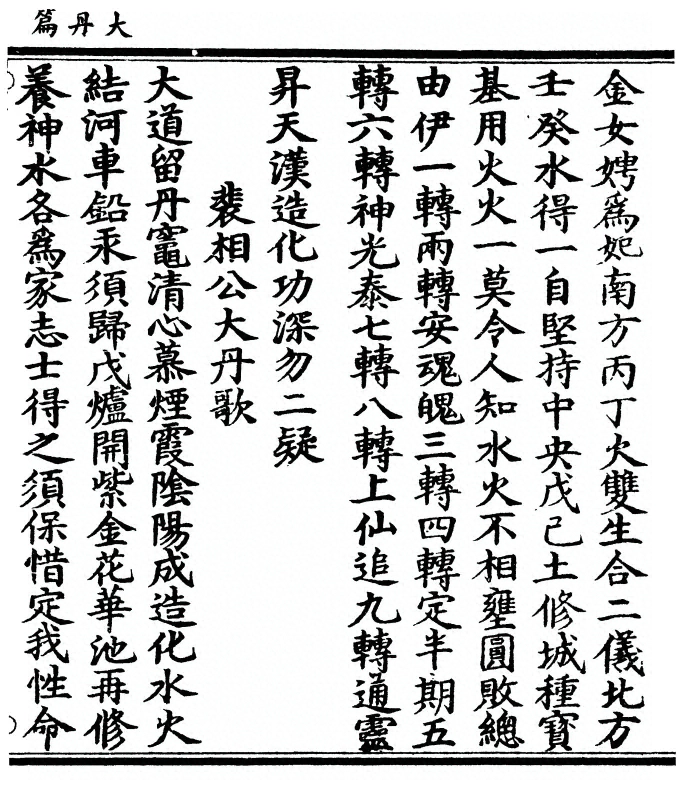 大丹篇
金女娉為妃南方丙丁火雙生合二儀北方
壬癸水得一自堅持中央戊己土修城種寶
基用火火一莫令人知水火不相壅圓敗總
由伊一轉兩轉安魂魄三轉四轉定半期五
轉六轉神光泰七轉八轉上仙追九轉通靈
昇天漢造化功深勿二疑
裴相公大丹歌
大道留丹竈清心慕煙霞陰陽成造化水火
結河車鉛汞須歸戊爐開紫金花華池再修
養神水各為家志士得之須保惜定我性命